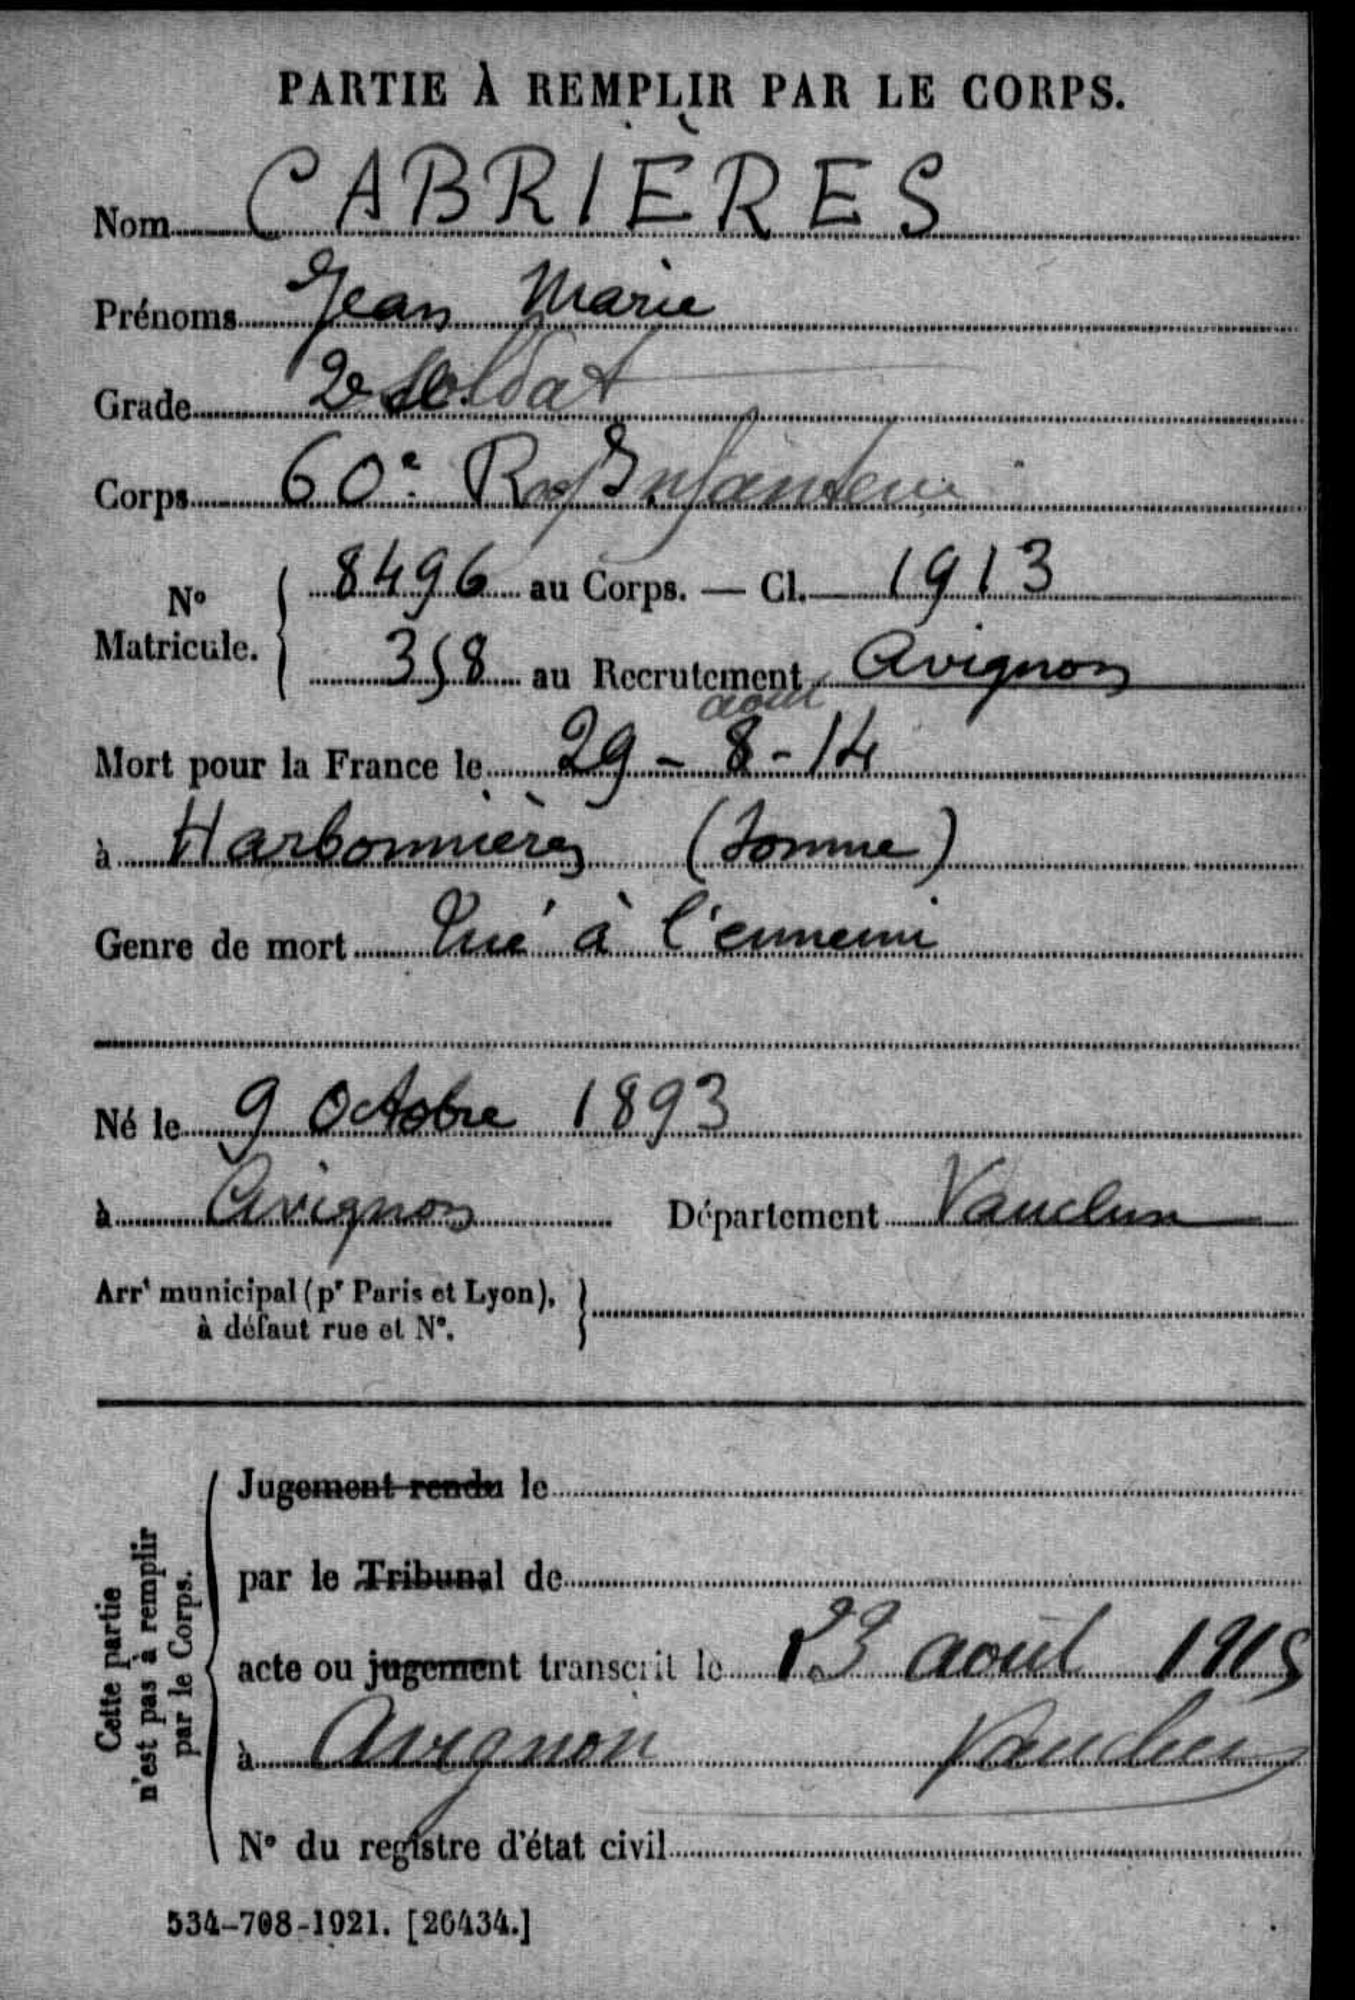 PARTIE À REMPLIR PAR LE CORPS.
Nom CABRIÈRES
Prénoms Jean Marie
Grade 2e Soldat
Corps 60e Reg Infanterie
No Matricule. 8496 au Corps. — Cl. 1913
358 au Recrutement Avignon
août
Mort pour la France le 29 - 8 - 14
à Harbonnières (Somme)
Genre de mort Tué à l'ennemi
Né le 9 Octobre 1893
à Avignon Département Vaucluse
Arrt municipal (pr Paris et Lyon),
à défaut rue et No.
Cette partie
n'est pas à remplir
par le Corps.
Jugement rendu le
par le Tribunal de
acte ou jugement transcrit le 23 août 1915
à Avignon Vaucluse
No du registre d'état civil
534-708-1921. [26434.]